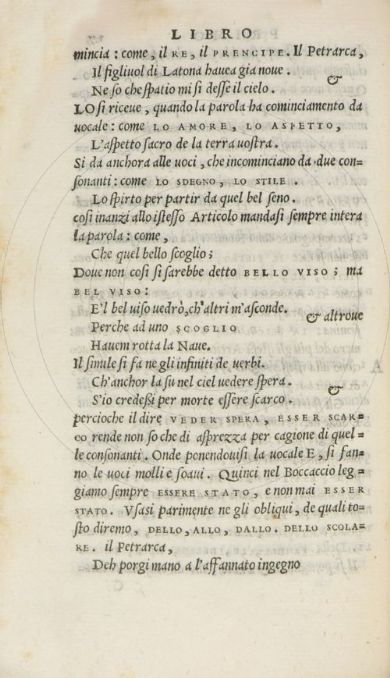 LIBRO
mincia : come, il RE, il PRENCIPE. Il Petrarca,
Il figliuol di Latona hauea gia noue.
&
Ne so che spatio mi si desse il cielo.
LO si riceue, quando la parola ha cominciamento da
uocale : come LO AMORE, LO ASPETTO,
L'aspetto sacro de la terra uostra.
Si da anchora alle uoci, che incominciano da due con-
sonanti : come LO SDEGNO, LO STILE.
Lo spirto per partir da quel bel seno.
cosi inanzi allo istesso Articolo mandasi sempre intera
la parola : come,
Che quel bello scoglio;
Doue non cosi si sarebbe detto BELLO VISO; ma
BEL VISO:
E'l bel uiso uedrò, ch'altri m'asconde.
& altroue
Perche ad uno SCOGLIO
Hauem rotta la Naue.
Il simile si fa ne gli infiniti de uerbi.
Ch'anchor la su nel ciel uedere spera.
&
S'io credessi per morte essere scarco.
percioche il dire VEDER SPERA, ESSER SCAR-
CO rende non so che di asprezza per cagione di quel-
le consonanti. Onde ponendouisi la uocale E, si fan-
no le uoci molli e soaui. Quinci nel Boccaccio leg-
giamo sempre ESSERE STATO, e non mai ESSER
STATO. Vsasi parimente ne gli obliqui, de quali to-
sto diremo, DELLO, ALLO, DALLO. DELLO SCOLA-
RE. il Petrarca,
Deh porgi mano a l'affannato ingegno